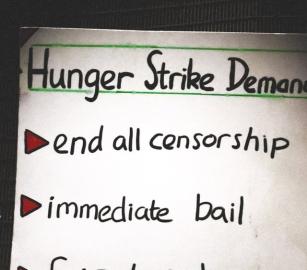 Hunger Strike Deman
end all censorship
immediate bail